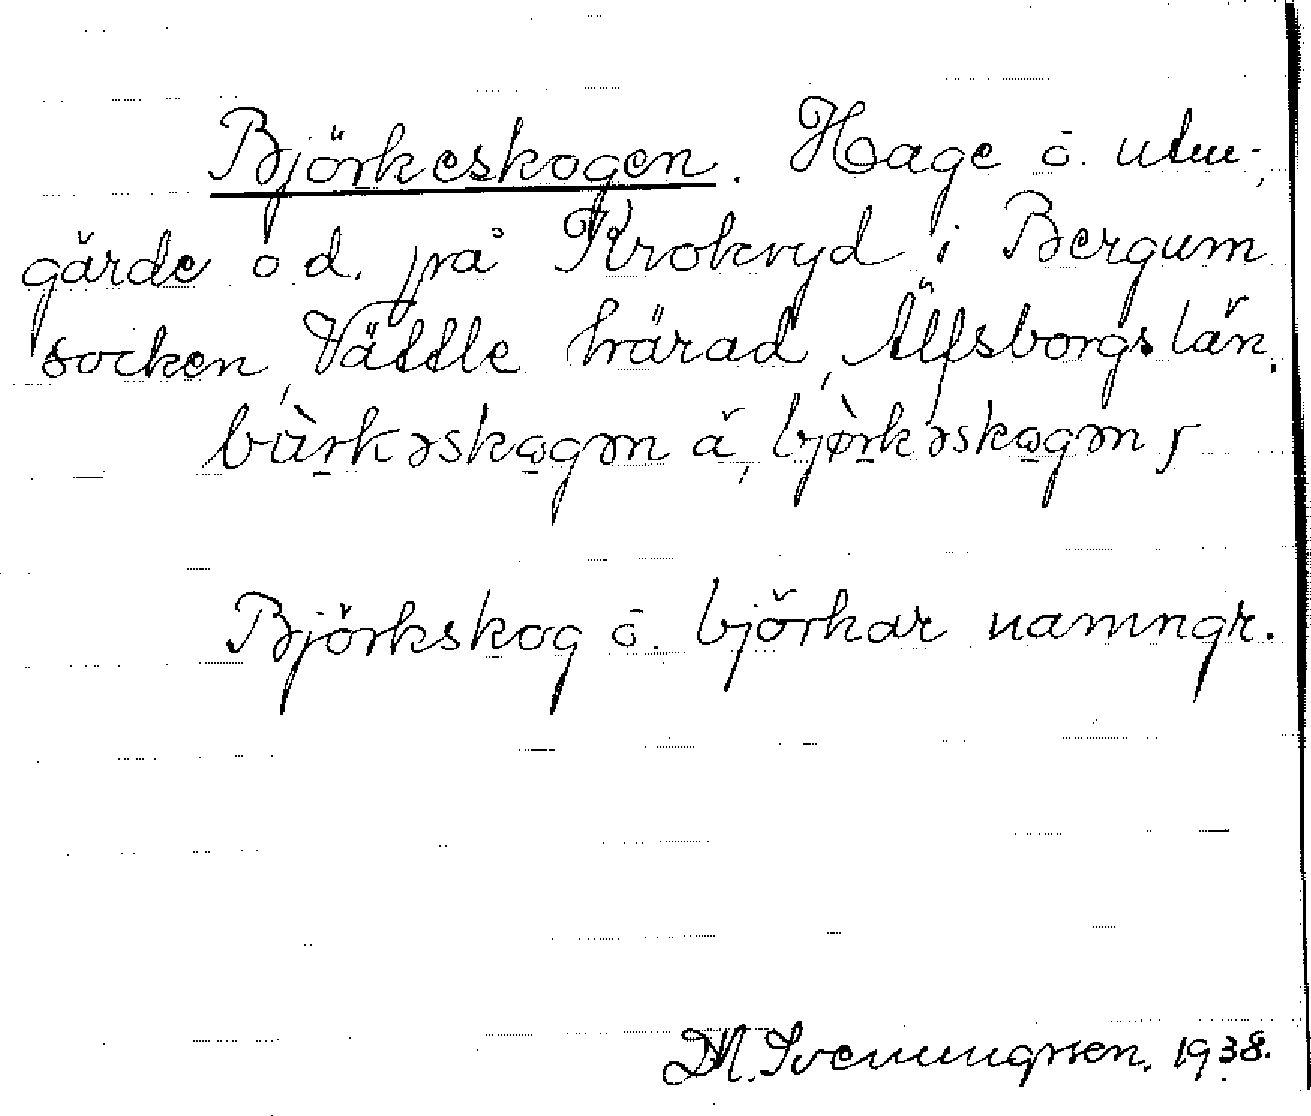 Björkeskogen. Hage o. utm-,
gärde o d. på Krokryd i Bergum
socken, Vättle härad, Älfsborgs län.
bùrkəskogən ä, bjø̀rkəskogən,
Björkskog o. björkar namngr.
Svenningsen. 1938.